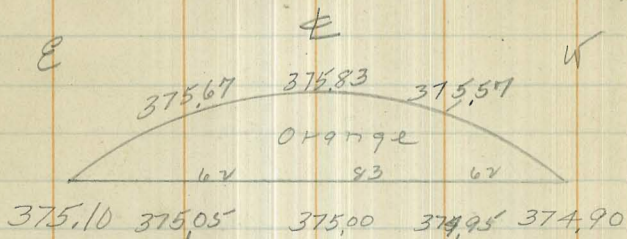 ℄
E W
375.67 375.83 375.57
Orange
62 83 62
375.10 375.05 375.00 374.95 374.90